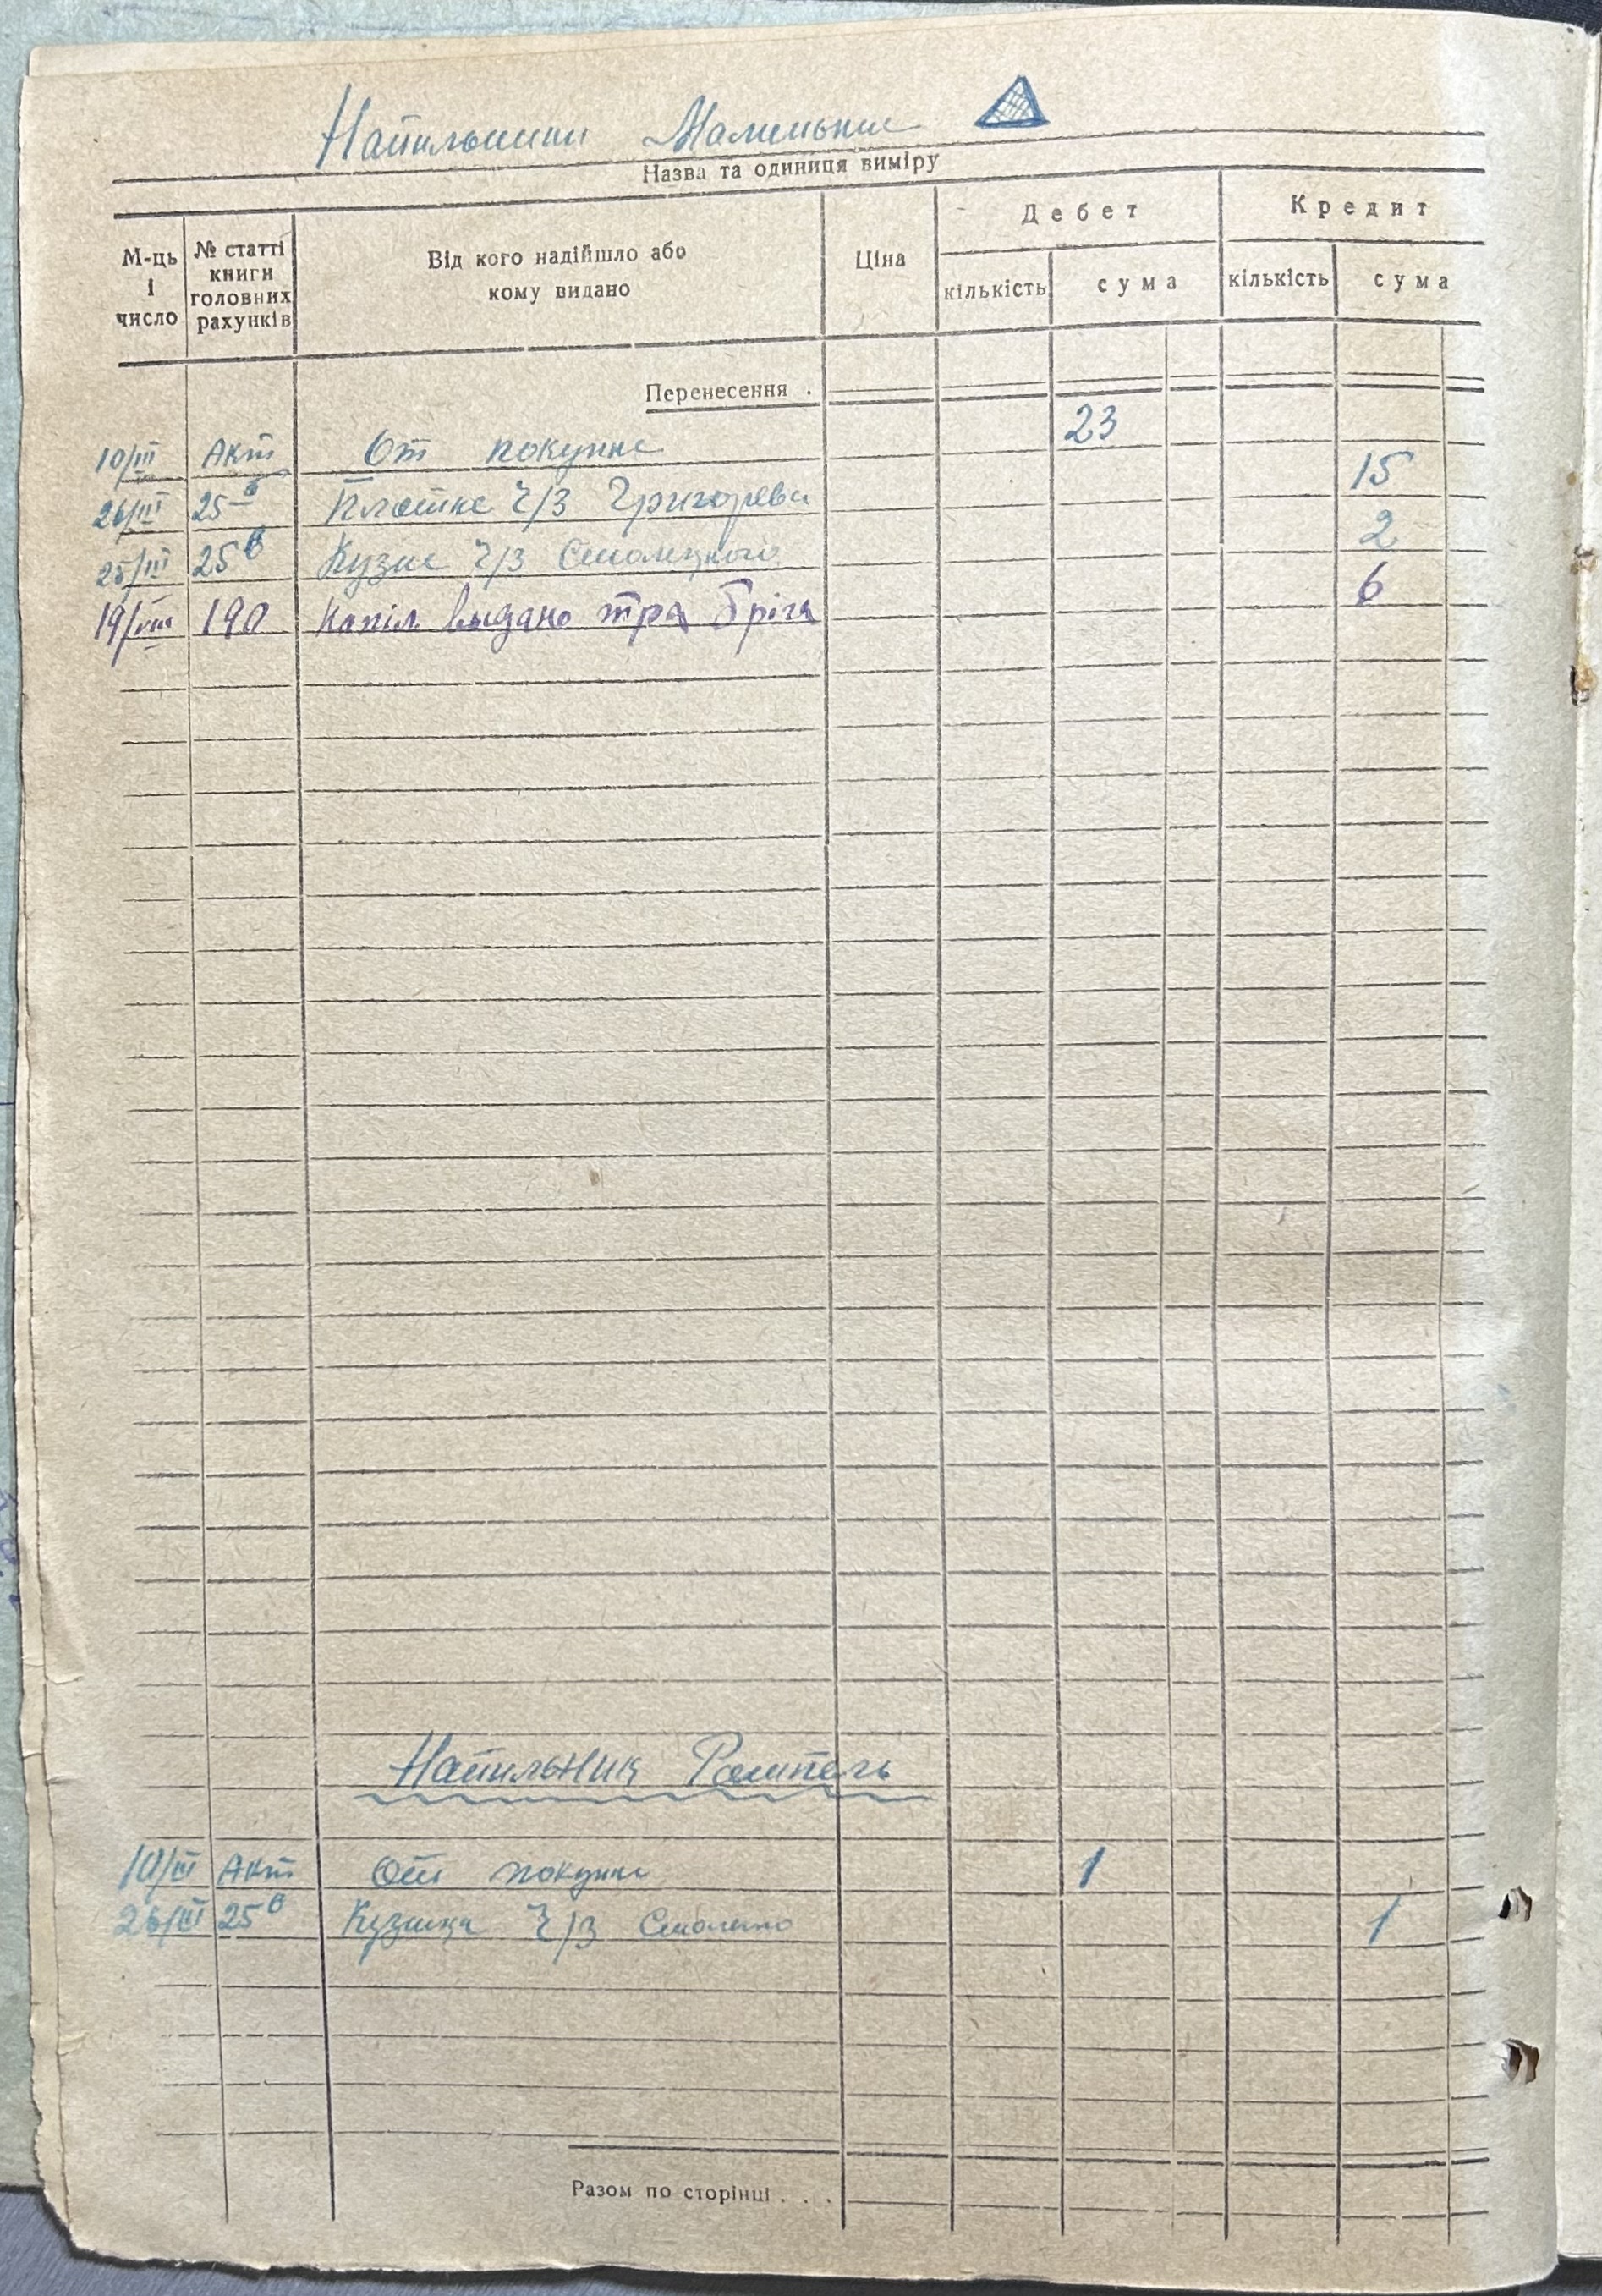 Напильники Маленькие
Назва та одиниця виміру
М-ць і число
№ статті книги головних рахунків
Від кого надійшло або кому видано
Ціна
Дебет
кількість
сума
Кредит
кількість
сума
Перенесення .
10/III Акт От покупки 23
26/III 25 в ч/з Григорева 15
25/III 25 в Кузне ч/з Смолецкого 2
19/VIII 190 Напіл. видано тра бріга 6
Напильник Рашпель
10/III Акт От покупки 1
26/III 25 в Кузница ч/з 1
Разом по сторінці . . .